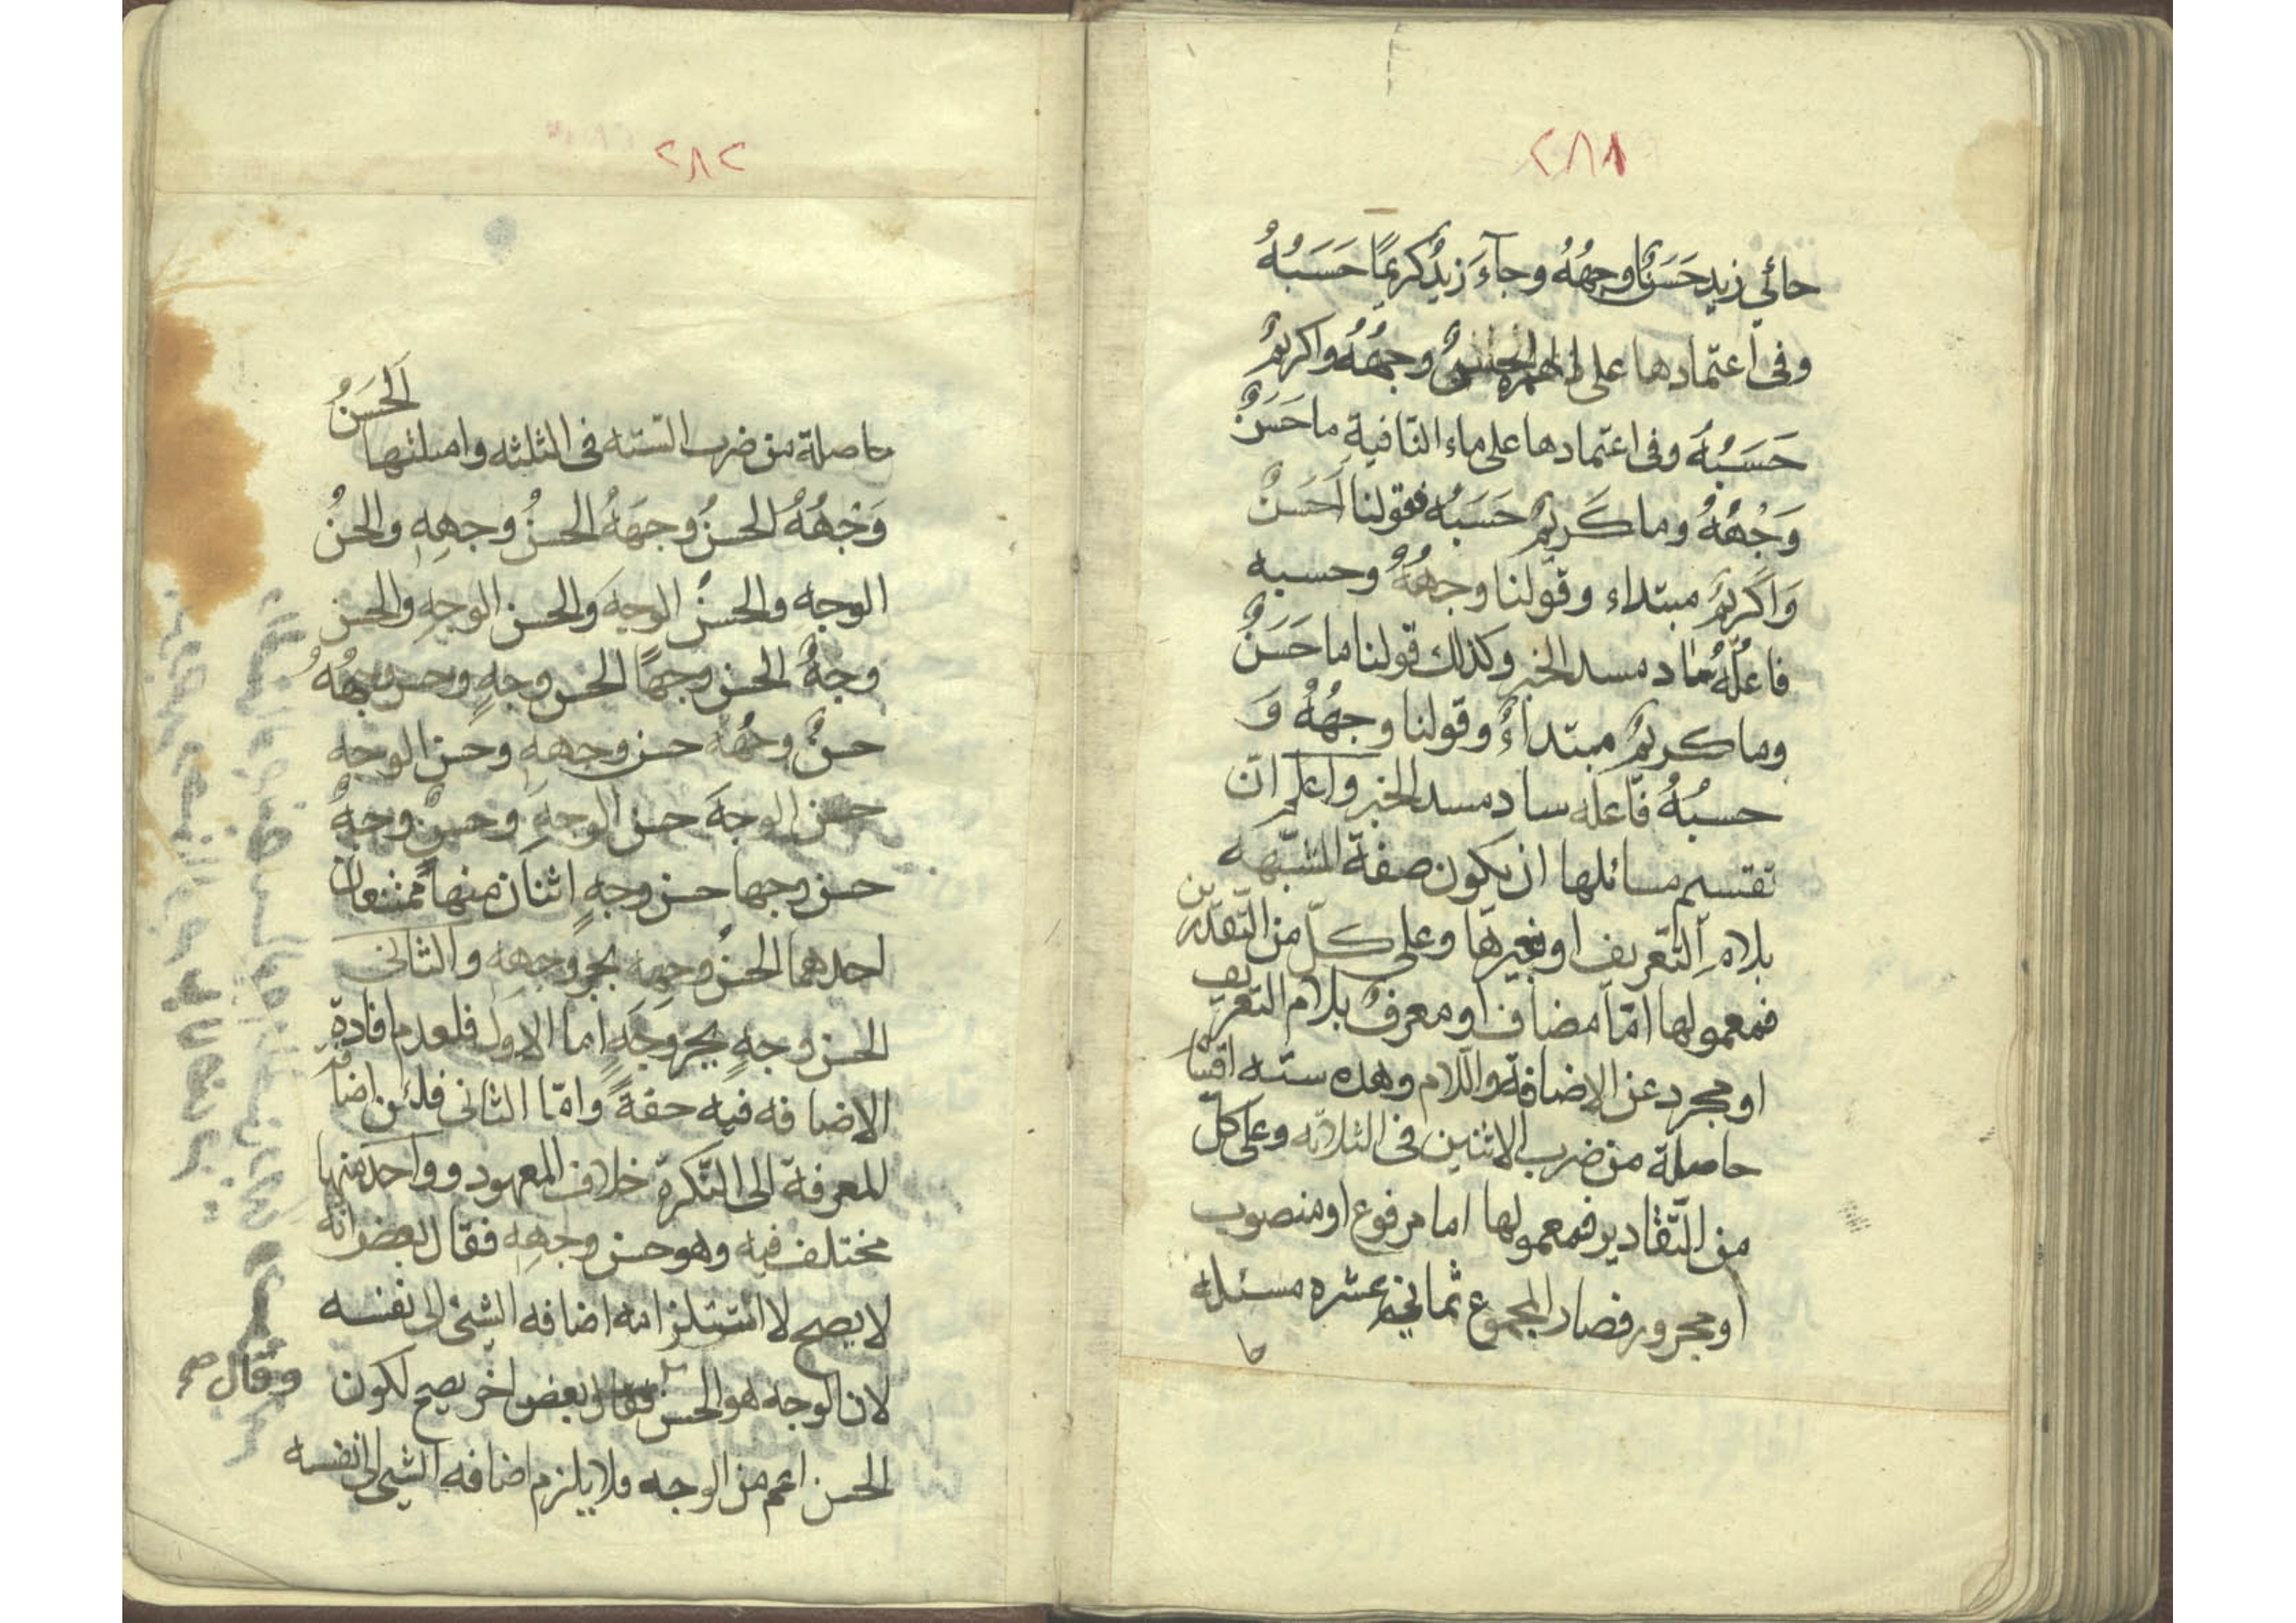 ٢٨١
حائي زيد حَسَنًا وجهُهُ وجآءَ زيدٌ كريمًا حَسَبُهُ
وفى اعتمادها على الهمزة وجهُهُ واكريمٌ
حَسَبُهُ وفى اعتمادها على ماء النّافية ما حَسَنٌ
وَجْهُهُ وما كَريمٌ حَسَبُه فقولنا اَحَسَنٌ
وَاَكَريمٌ مبتداء وقولنا وجههُ وحسبه
فاعلُهُ ساد مسد الخبر وكذلك قولنا ما حَسَنٌ
وما كريمٌ مبتداءٌ وقولنا وجهُهُ وَ
حسبُهُ فاعله ساد مسد الخبر واعلم انّ
تقتسم مسائلها ان يكون صفة المشبّهه
بلام التّعريف او بغيرها وعلى كلّ من التّقدّرين
فمعمولها امّا مضاف او معرف بلام التعريف
او مجرد عن الاضافة واللام وهذه سته اقسا
حاصلة من ضرب الاثنين فى الثلاثه وعلى كلّ
من التّقادير فمعمولها اما مرفوع او منصوب
او مجرور فصار المجموع ثمانية عشره مسئله
حا
٢٨٢
اَلحَسَنُ
حاصلة من ضرب السّته فى الثلثه وامثلتها
وَجْهُهُ الحسنُ وجهَهُ الحسنُ وجهِهِ والحسنُ
الوجه والحسنُ الوجهَ والحسن الوجهِ والحسن
وجهٌ الحسن وجهًا الحسن وجهٍ وحسن وجهُهُ
حسنٌ وجهَهُ حسن وجههِ وحسن الوجهِ
حسن الوجهَ حسن الوجهِ وحسنٌ وجهٌ
حسن وجها حسن وجهٍ اثنان منها ممتنعان
احدهما الحسنُ وجهِه بجر وجههِ والثانى
الحسن وجهٍ بجر وجهٍ اما الاول فلعدم افادة
الاضافه فيه خفةً وامّا الثانى فلئن اضافة
المعرفة الى النّكرة خلاف المعهود وواحد منها
مختلف فيه وهو حسن وجهِهِ فقال بعض انه
لا يصح لا استتلزامه اضافه الشئ الى نفسه
لان الوجه هو الحسن وقال بعض اخر يصح لكون
وقال صح
الحسن اعم من الوجه ولا يلزم اضافه الشئ الى نفسه